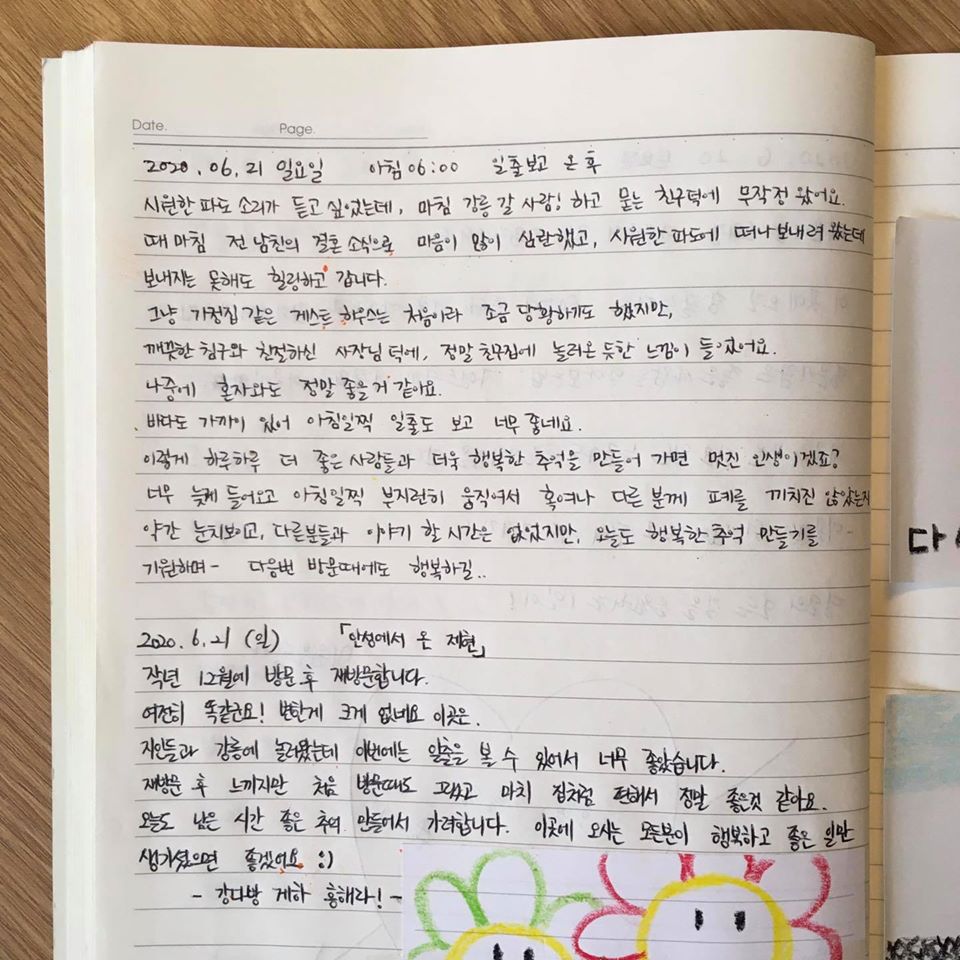 Date. Page.
2020. 06. 21 일요일 아침 06:00 일출보고 온 후
시원한 파도 소리가 듣고 싶었는데, 마침 강릉 갈 사람! 하고 묻는 친구덕에 무작정 왔어요.
때마침 전 남친의 결혼 소식으로 마음이 많이 심란했고, 시원한 파도에 떠나보내려 왔는데
보내지는 못해도 힐링하고 갑니다.
그냥 가정집 같은 게스트 하우스는 처음이라 조금 당황하기도 했지만,
깨끗한 침구와 친절하신 사장님 덕에, 정말 친구집에 놀러온 듯한 느낌이 들었어요.
나중에 혼자와도 정말 좋을거 같아요.
바다도 가까이 있어 아침일찍 일출도 보고 너무 좋네요.
이렇게 하루하루 더 좋은 사람들과 더욱 행복한 추억을 만들어 가면 멋진 인생이겠죠?
너무 늦게 들어오고 아침일찍 부지런히 움직여서 혹여나 다른 분께 피폐를 끼치진 않았는지
약간 눈치보이고, 다른분들과 이야기 할 시간은 없었지만, 오늘도 행복한 추억 만들기를
기원하며- 다음번 방문때에도 행복하길..
2020. 6. 21 (일) 「안성에서 온 제현」
작년 12월에 방문 후 재방문합니다.
여전히 똑같군요! 변한게 크게 없네요 이곳은.
지인들과 강릉에 놀러왔는데 이번에는 일출을 볼 수 있어서 너무 좋았습니다.
재방문 후 느끼지만 처음 방문때도 그랬고 마치 집처럼 편해서 정말 좋은것 같아요.
오늘도 남은 시간 좋은 추억 만들어서 가려합니다. 이곳에 오시는 모든분이 행복하고 좋은 일만
생기셨으면 좋겠어요 :)
- 강다방 게하 흥해라! -